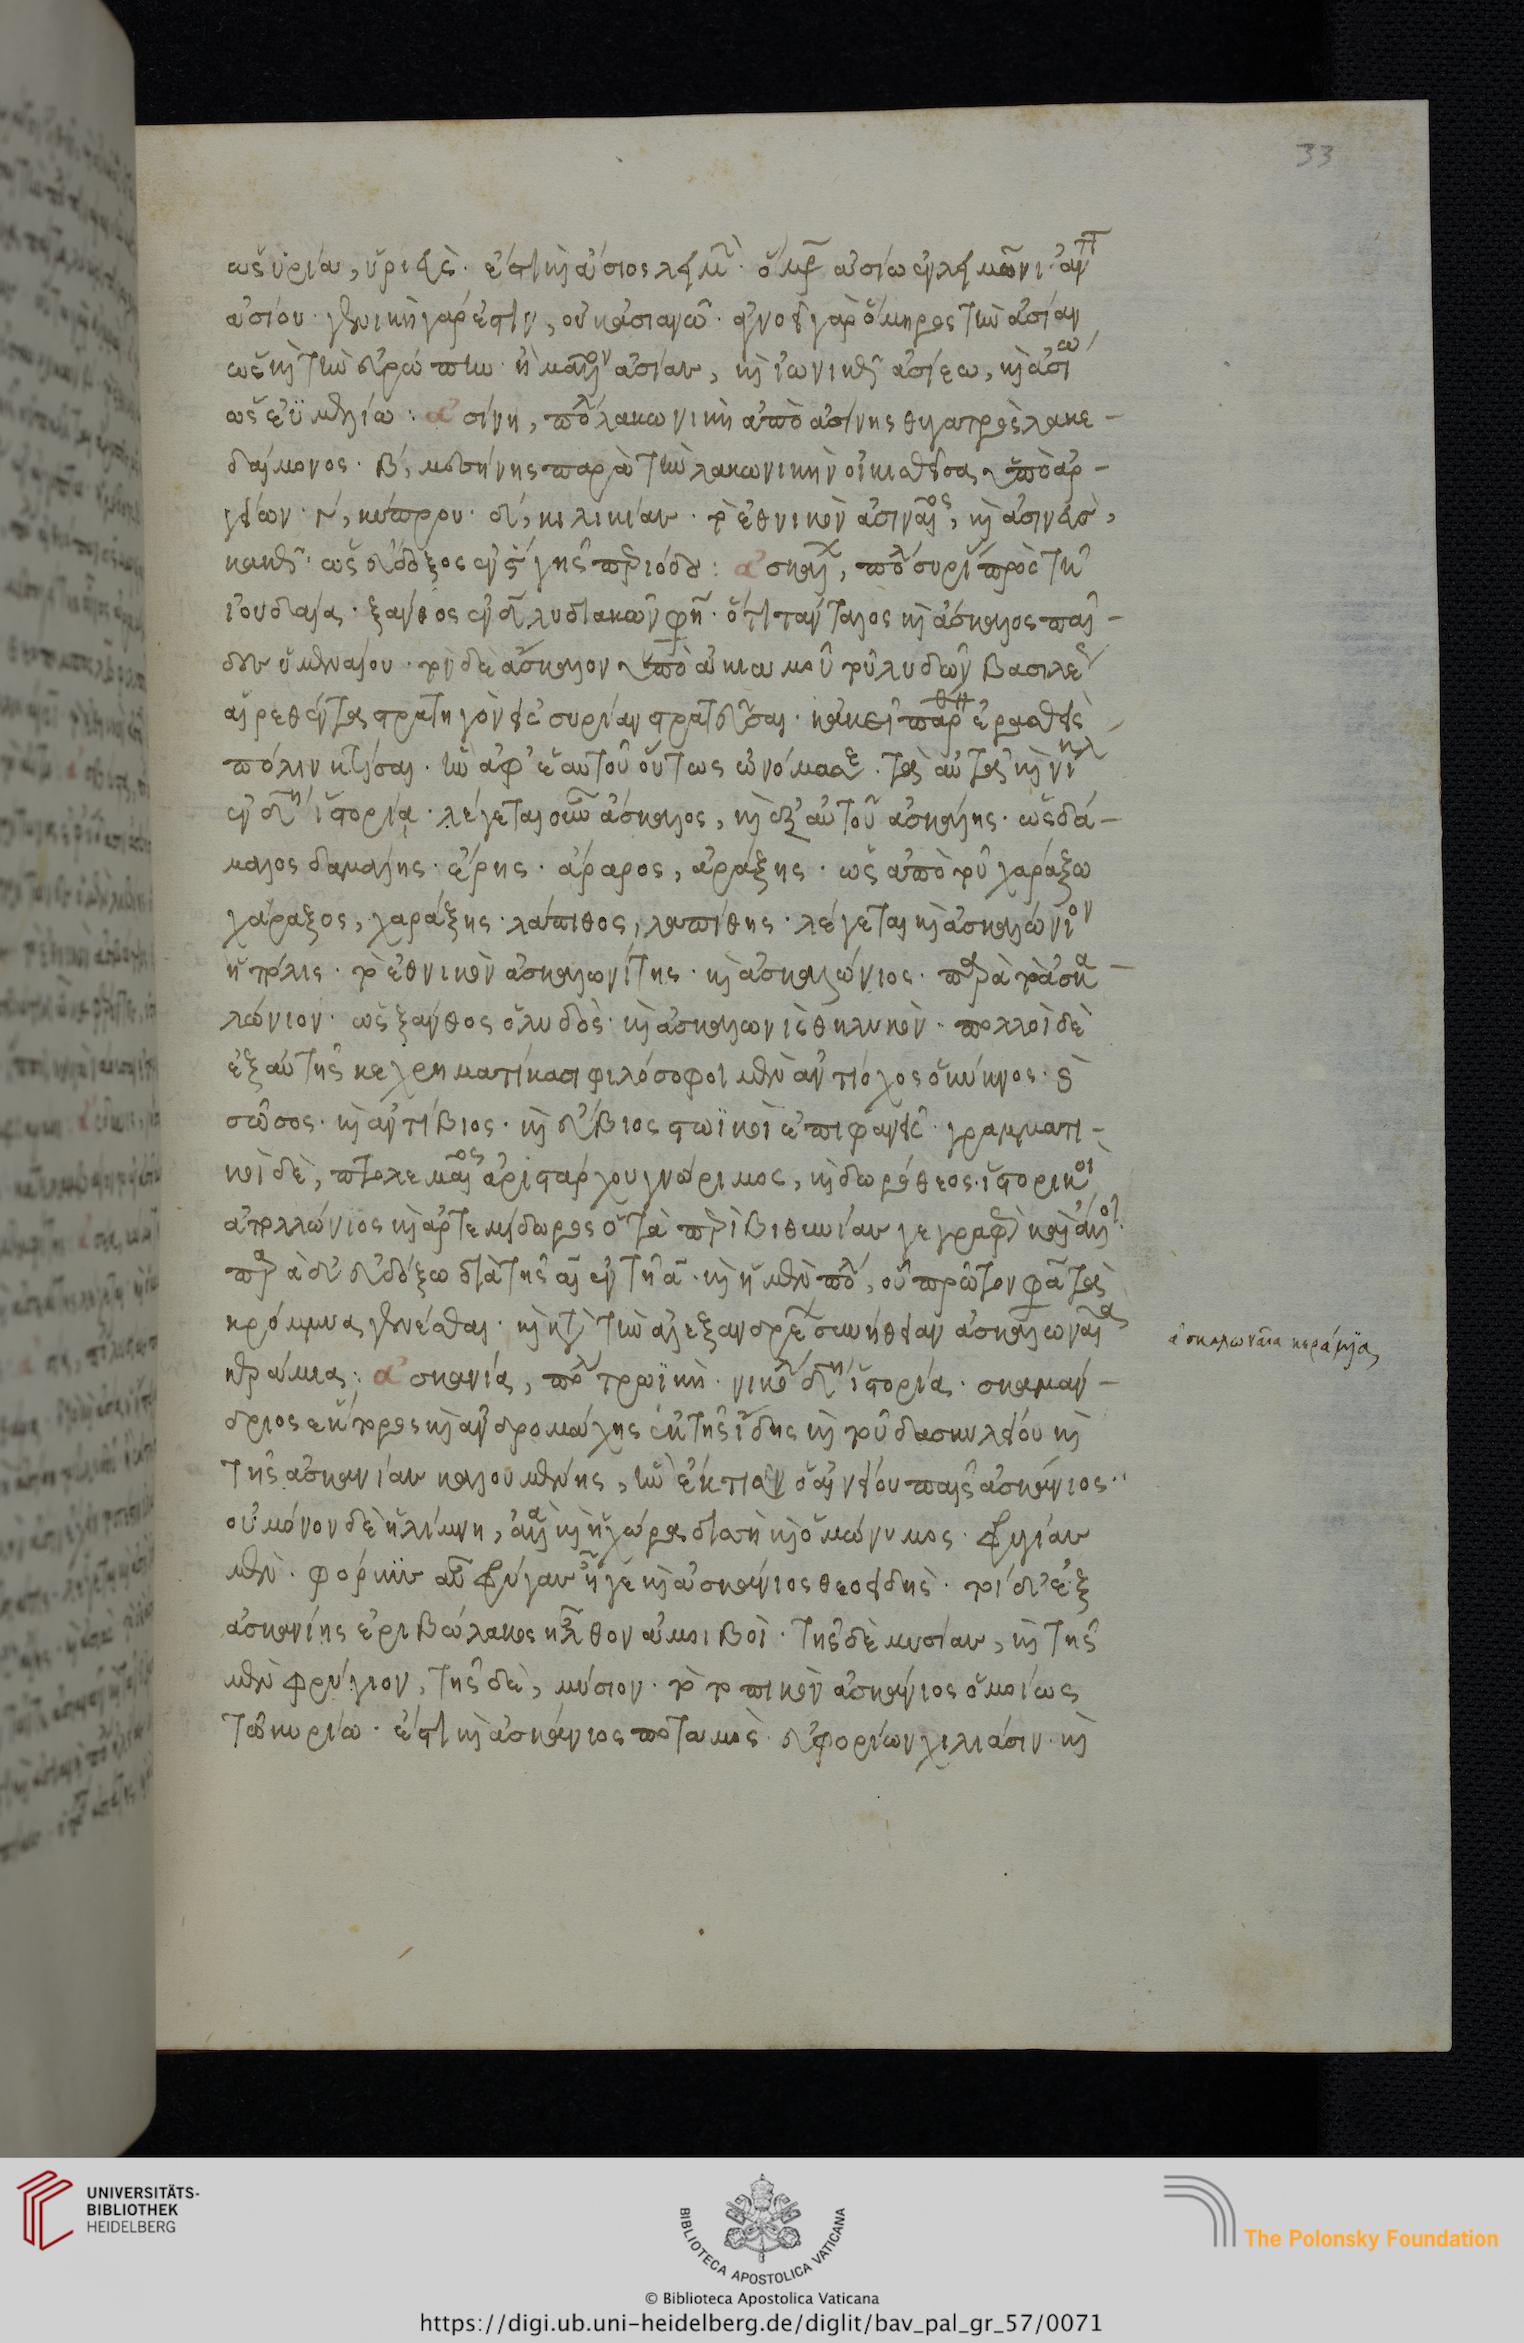 33
ὡς ὑρία, ὑριεύς. ἔστι καὶ ἄσιος λειμὼν. ὅμηρος ἀσίω ἐν λειμῶνι. ἀπ
ἀσίου. γενικὴ γάρ ἐστιν, οὐκ ἀσιανῶ. ἠγνόει γὰρ ὅμηρος τὴν ἀσίαν
ὡς καὶ τὴν εὐρώπην. ἢ μᾶλλον ἀσίας, καὶ ἰωνικῶς ἀσίεω, καὶ ἀσίω
ὡς ἐϋμμελίω: ἀσίνη, πόλις λακωνικὴ ἀπὸ ἀσίνης θυγατρὸς λακε-
δαίμονος. β, μεσσήνης παρὰ τὴν λακωνικὴν οἰκισθεῖσα ὑπὸ ἀρ-
γείων. γ, κύπρου. δ, κιλικίας. τὸ ἐθνικὸν ἀσιναῖος, καὶ ἀσινεὺς,
κακῶς. ὡς εὔδοξος ἐν ς γῆς περιόδου: ἀσκάλων, πόλις συρίας πρὸς τῆ
ἰουδαία. ξάνθος ἐν δ λυδιακῶν φησὶν. ὅτι τάνταλος καὶ ἄσκαλος παῖ-
δες ὑμεναίου. τὸν δὲ ἄσκαλον ὑπὸ ἀκιαμοῦ τοῦ λυδῶν βασιλέως
αἱρεθέντα στρατηγὸν εἰς συρίαν στρατεῦσαι. κἀκεῖ παρθένου ἐρασθεὶς
πόλιν κτίσαι. ἣν ἀφ' ἑαυτοῦ οὕτως ὠνόμασε. τὰ αὐτὰ καὶ νικόλ
ἐν δ ἱστορία. λέγεται οὖν ἄσκαλος, καὶ ἐξ αὐτοῦ ἀσκάλης. ὡς δά-
μαλος δαμάλης. ἔρης. ἄραρος, ἀράξης. ὡς ἀπὸ τοῦ χαράξω
χάραξος, χαράξης. λάπιθος, λαπίθης. λέγεται καὶ ἀσκαλώνιον
ἡ πόλις. τὸ ἐθνικὸν ἀσκαλωνίτης. καὶ ἀσκαλώνιος. παρὰ τὸ ἀσκα-
λώνιον. ὡς ξάνθος ὁ λυδὸς. καὶ ἀσκαλωνὶς θηλυκὸν. πολλοὶ δὲ
ἐξ αὐτῆς κεχρηματίκασι φιλόσοφοι μὲν ἀντίοχος ὁ κύκνος. καὶ
σῶσος. καὶ ἀντίβιος. καὶ εὔβιος στωϊκοὶ ἐπιφανεῖς. γραμματι-
κοὶ δὲ, πτολεμαῖος ἀριστάρχου γνώριμος, καὶ δωρόθεος. ἱστορικοὶ
ἀπολλώνιος καὶ ἀρτεμίδωρος ὁ τὰ περὶ βιθυνίας γεγραφὼς καὶ ἄλλοι.
καὶ ἡ μὲν πόλις, οὗ πρῶτον φασὶ τὰ
κρόμμυα γενέσθαι. καὶ κατὰ τὴν ἀλεξάνδρειαν συνήθειαν ἀσκαλωναῖα
κεράμια: ἀσκανία, πόλις τρωϊκὴ. νικόλ δ ἱστορία. σκαμάν-
δριος ἕκτορος καὶ ἀνδρομάχης ἐκ τῆς ἴδης καὶ τοῦ δασκυλείου καὶ
τῆς ἀσκανίας καλουμένης, ἣν ἔκτισεν ὁ αἰνείου παῖς ἀσκάνιος.
οὐ μόνον δὲ ἡ λίμνη, ἀλλὰ καὶ ἡ χώρα διττὴ καὶ ὁμώνυμος. φρυγίας
μὲν. φόρκυν αὖ φρύγας ἦγε καὶ ἀσκάνιος θεοειδής. οἵ ἐξ
ἀσκανίης ἐριβώλακος ἦλθον ἀμοιβοὶ. τῆς δὲ μυσίας, καὶ τῆς
μὲν φρύγιον, τῆς δὲ, μύσιον. τὸ τοπικὸν ἀσκάνιος ὁμοίως
τῶ κυρίω. ἔστι καὶ ἀσκάνιος ποταμὸς. εὐφορίων χιλιάσιν. καὶ
ἀσκαλωναῖα κεράμϊα
UNIVERSITÄTS-
BIBLIOTHEK
HEIDELBERG
BIBLIOTECA APOSTOLICA VATICANA
The Polonsky Foundation
© Biblioteca Apostolica Vaticana
https://digi.ub.uni-heidelberg.de/diglit/bav_pal_gr_57/0071